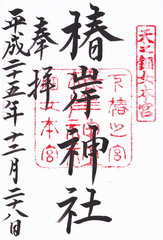 天之鈿女本宮
椿岸神社
奉拝
平成二十五年十二月二十八日